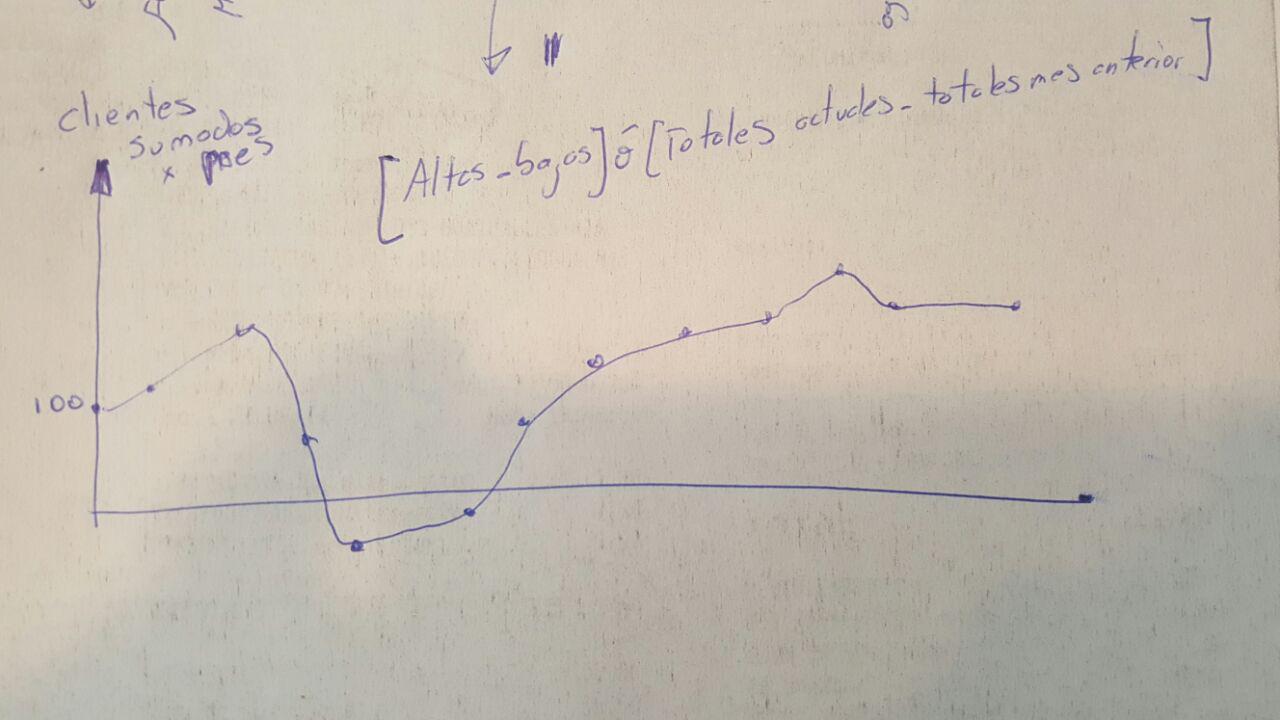 clientes
sumados
x mes
[Altas - bajas] ó [Totales actuales - totales mes anterior]
100